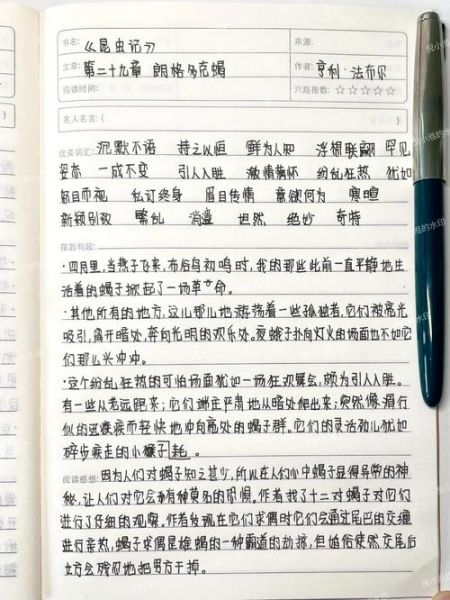 书名: 《昆虫记》
来源:
文章: 第二十九章 朗格多克蝎
作者: 亨利·法布尔
阅读时间:
兴趣指数: ☆☆☆☆☆
名人名言:( )
优美词汇: 沉默不语 持之以恒 鲜为人知 浮想联翩 罕见
姿态 一成不变 引人入胜 激情满怀 纷乱狂热 犹如
怒目而视 私订终身 眉目传情 意欲何为 寒暄
新颖别致 繁乱 消遣 坦然 绝妙 奇特
精彩句段:
·四月里,当燕子飞来,布谷鸟初鸣时,我的那些此前一直平静地生
活着的蝎子掀起了一场革命。
·其他所有的地方,这儿那儿地游荡着一些孤独者,它们被亮光
吸引,离开暗处,奔向光明的欢乐处。夜蛾子扑向灯火的场面也不如它
们那么兴冲冲。
·这个纷乱狂热的可怕场面犹如一场狂欢舞会,颇为引人入胜。
有一些从老远跑来;它们端庄严肃地从暗处爬出来;突然像滑行
似的迅疾而轻快地冲向亮处的蝎子群。它们的灵活劲儿犹如
碎步疾走的小耗子。
阅读感想: 因为人们对蝎子知之甚少,所以在人们心中蝎子显得异常的神
秘,让人们对它会有种莫名的恐惧。作者找了十二对蝎子对它们
进行了仔细的观察。作者发现在它们求偶时它们会通过尾巴的交缠
进行亲热,蝎子求偶是雄蝎的一种霸道的劫掠,但婚俗使然交尾后
女方会残忍地把男方干掉。